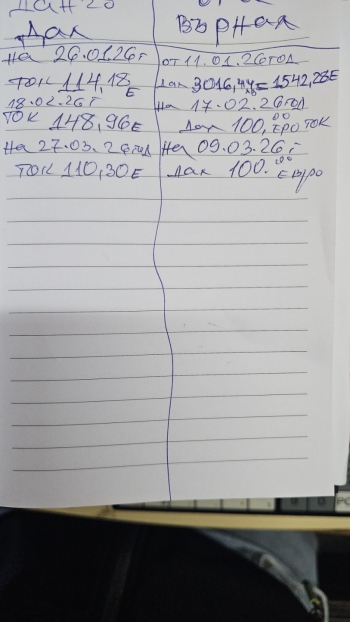 Дал
Върнал
На 26.01.26г
ТОК 114,18 Е
18.02.26г
ТОК 148,96 Е
На 27.03.26год
ТОК 110,30 Е
от 11.01.26год
Дал 3016,44лв=1542,28Е
На 17.02.26год
Дал 100,00 ЕРО ТОК
На 09.03.26г
Дал 100.00 ЕВРО